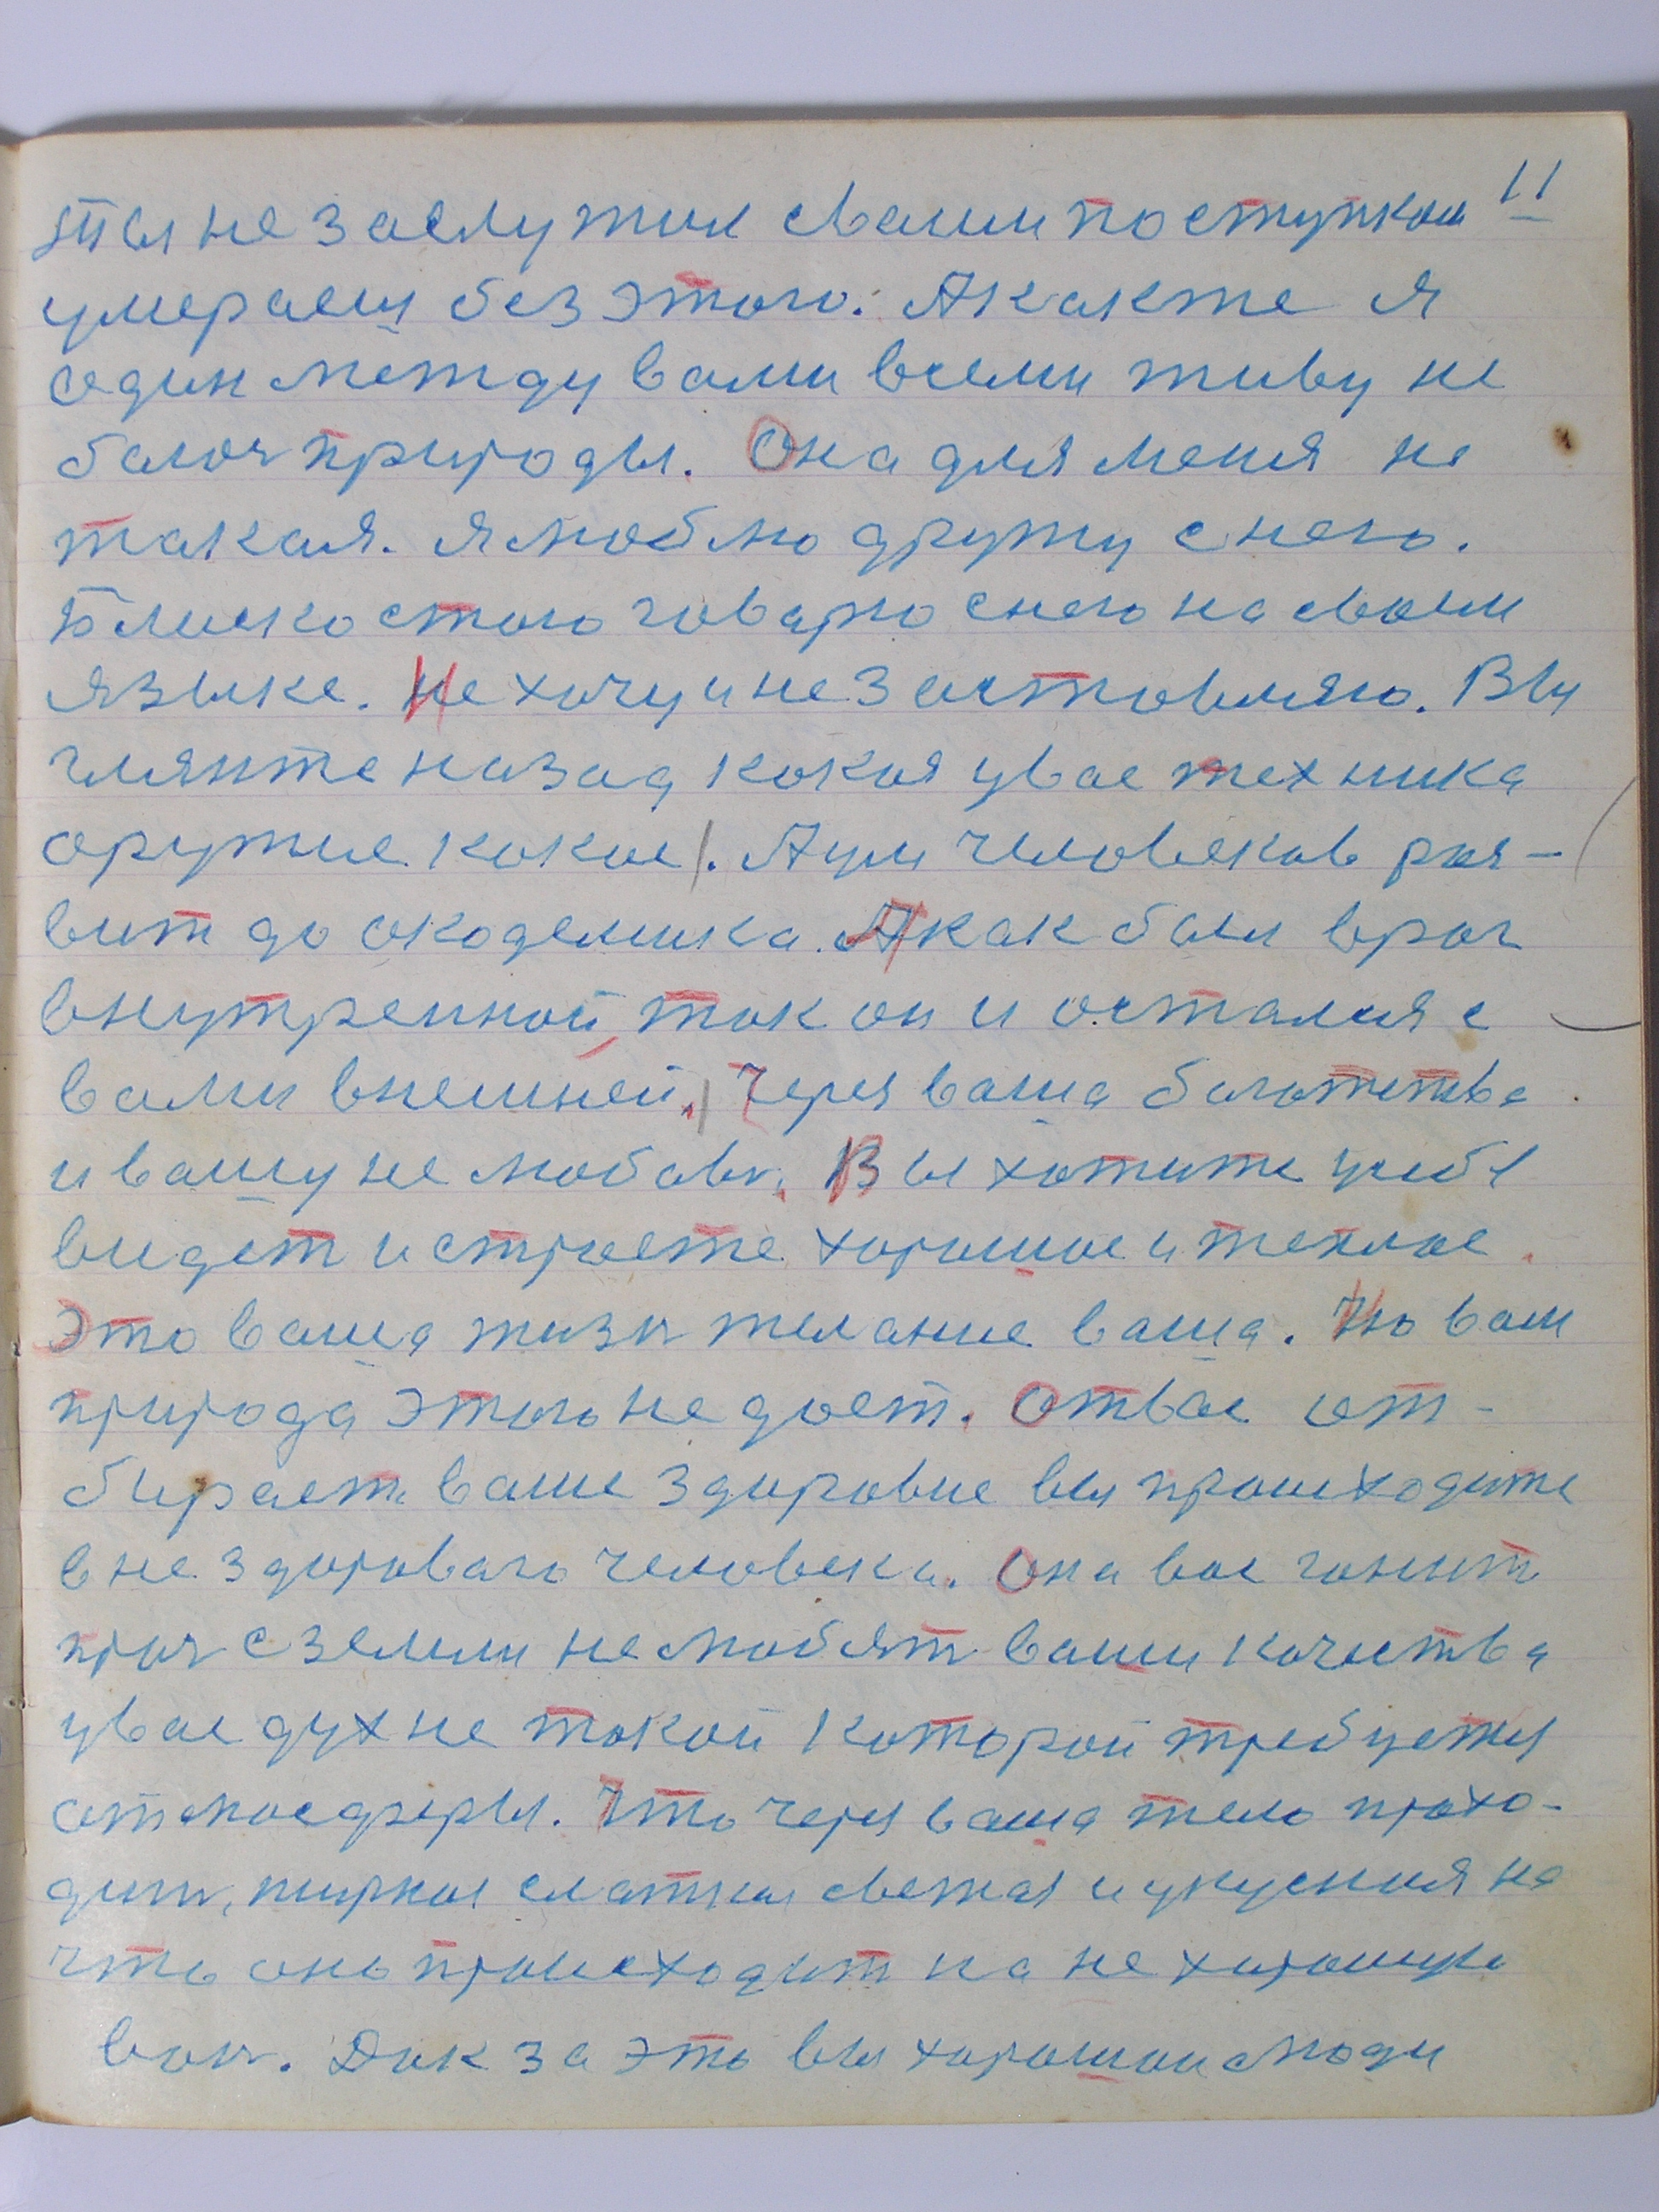 11
ты не заслужил своим поступком
умераеш без этого. А как же я
один между вами всеми живу не
болоч природы. Она для меня не
такая. Я люблю дружу с нею.
Блиско стою говарю с нею на своем
языке. Не хочу и не заставляю. Вы
гляньте назад кокоя у вас техника
оружие кокое. А ум человеков роз-
вит до окодемика. А как был враг
внутренной, так он и остался с
вами внешней. Через ваша богатства
и вашу не любовь. Вы хотите
видет и строете хорошое и теплое.
Это ваша жизн желание ваша. Но вам
природа этого не дает. От вас от-
бирает ваше здоровие вы происходите
в не здорового человека. Она вас гонит
проч с земли не любят ваши качества
у вас дух не такой которой требуется
отмосферы. Что через ваша тело прохо-
дит, жиркоя слаткоя свежая и укусная на
что оно происходит на не хорошую
вон. Дак за это вы хорошои люди